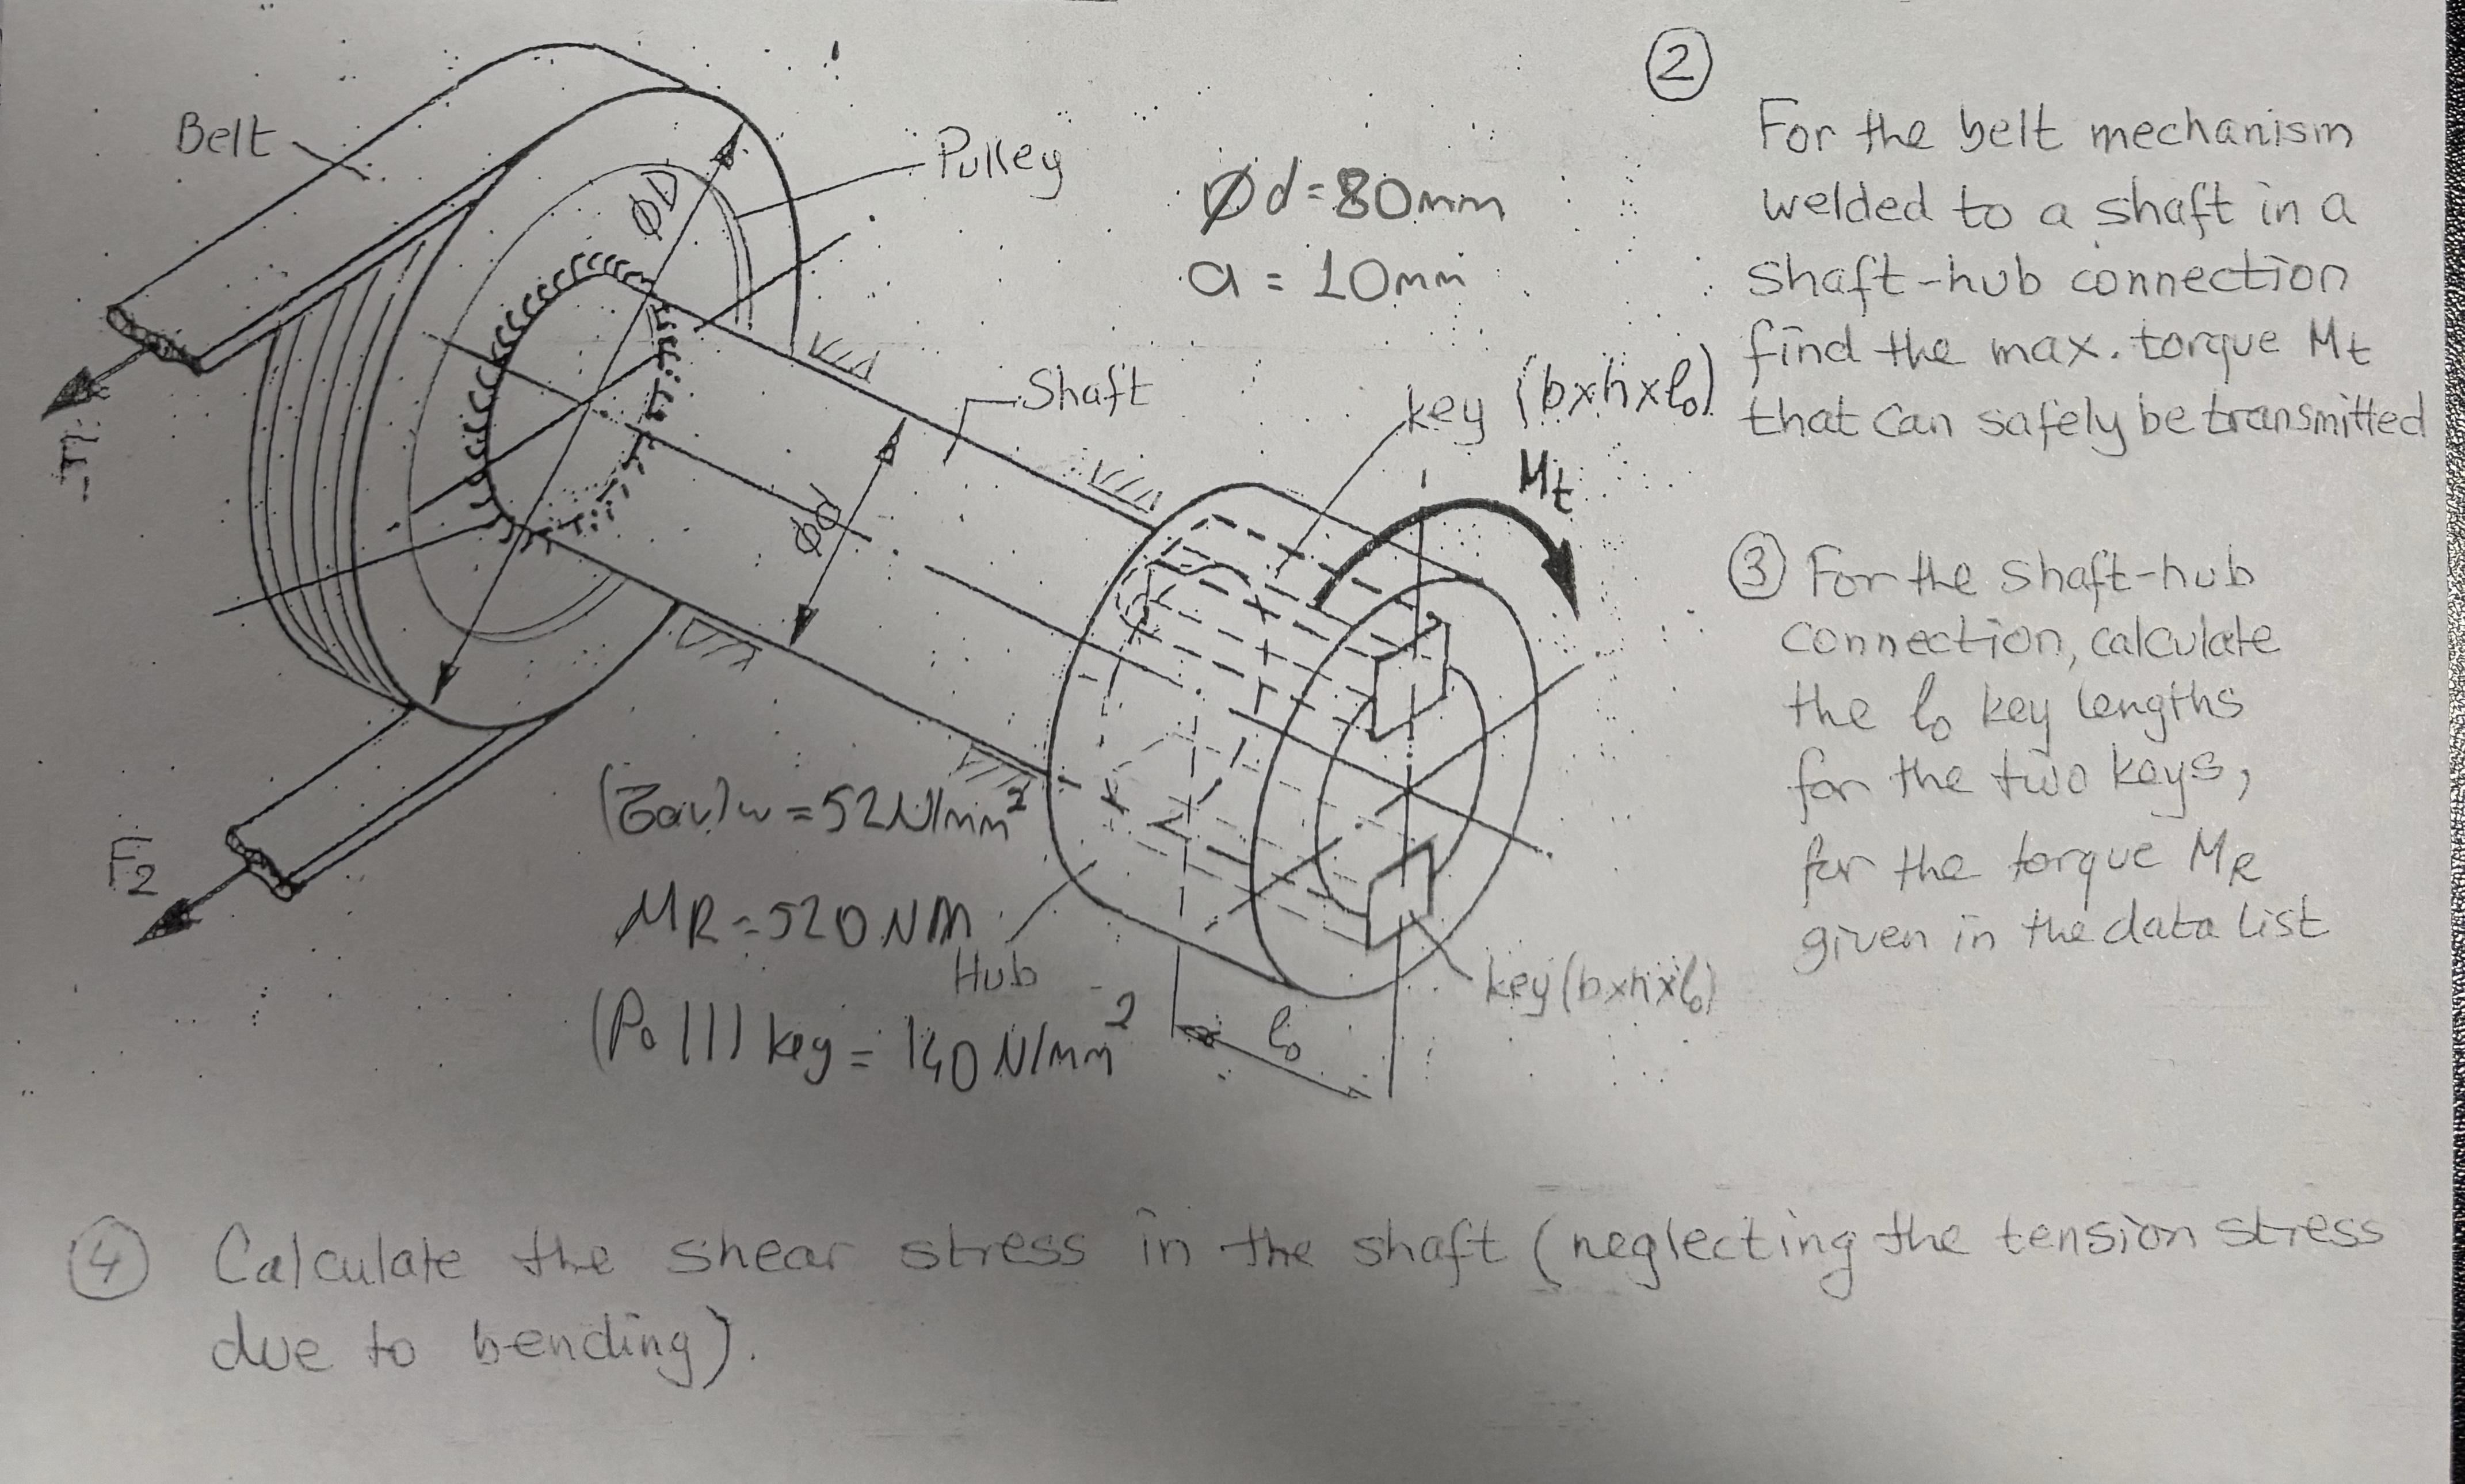 Belt
Pulley
ØD
Ød = 80mm
a = 10mm
Shaft
key (bxhxl₀)
Mt
Ød
F₂
(τav)w = 52N/mm²
MR = 520 NM
Hub
(P₀ 11) key = 140 N/mm²
l₀
key (bxhxl₀)
②
For the belt mechanism
welded to a shaft in a
shaft-hub connection
find the max. torque Mt
that can safely be transmitted
③ For the shaft-hub
connection, calculate
the l₀ key lengths
for the two keys,
for the torque MR
given in the data list
④ Calculate the shear stress in the shaft (neglecting the tension stress
due to bending).